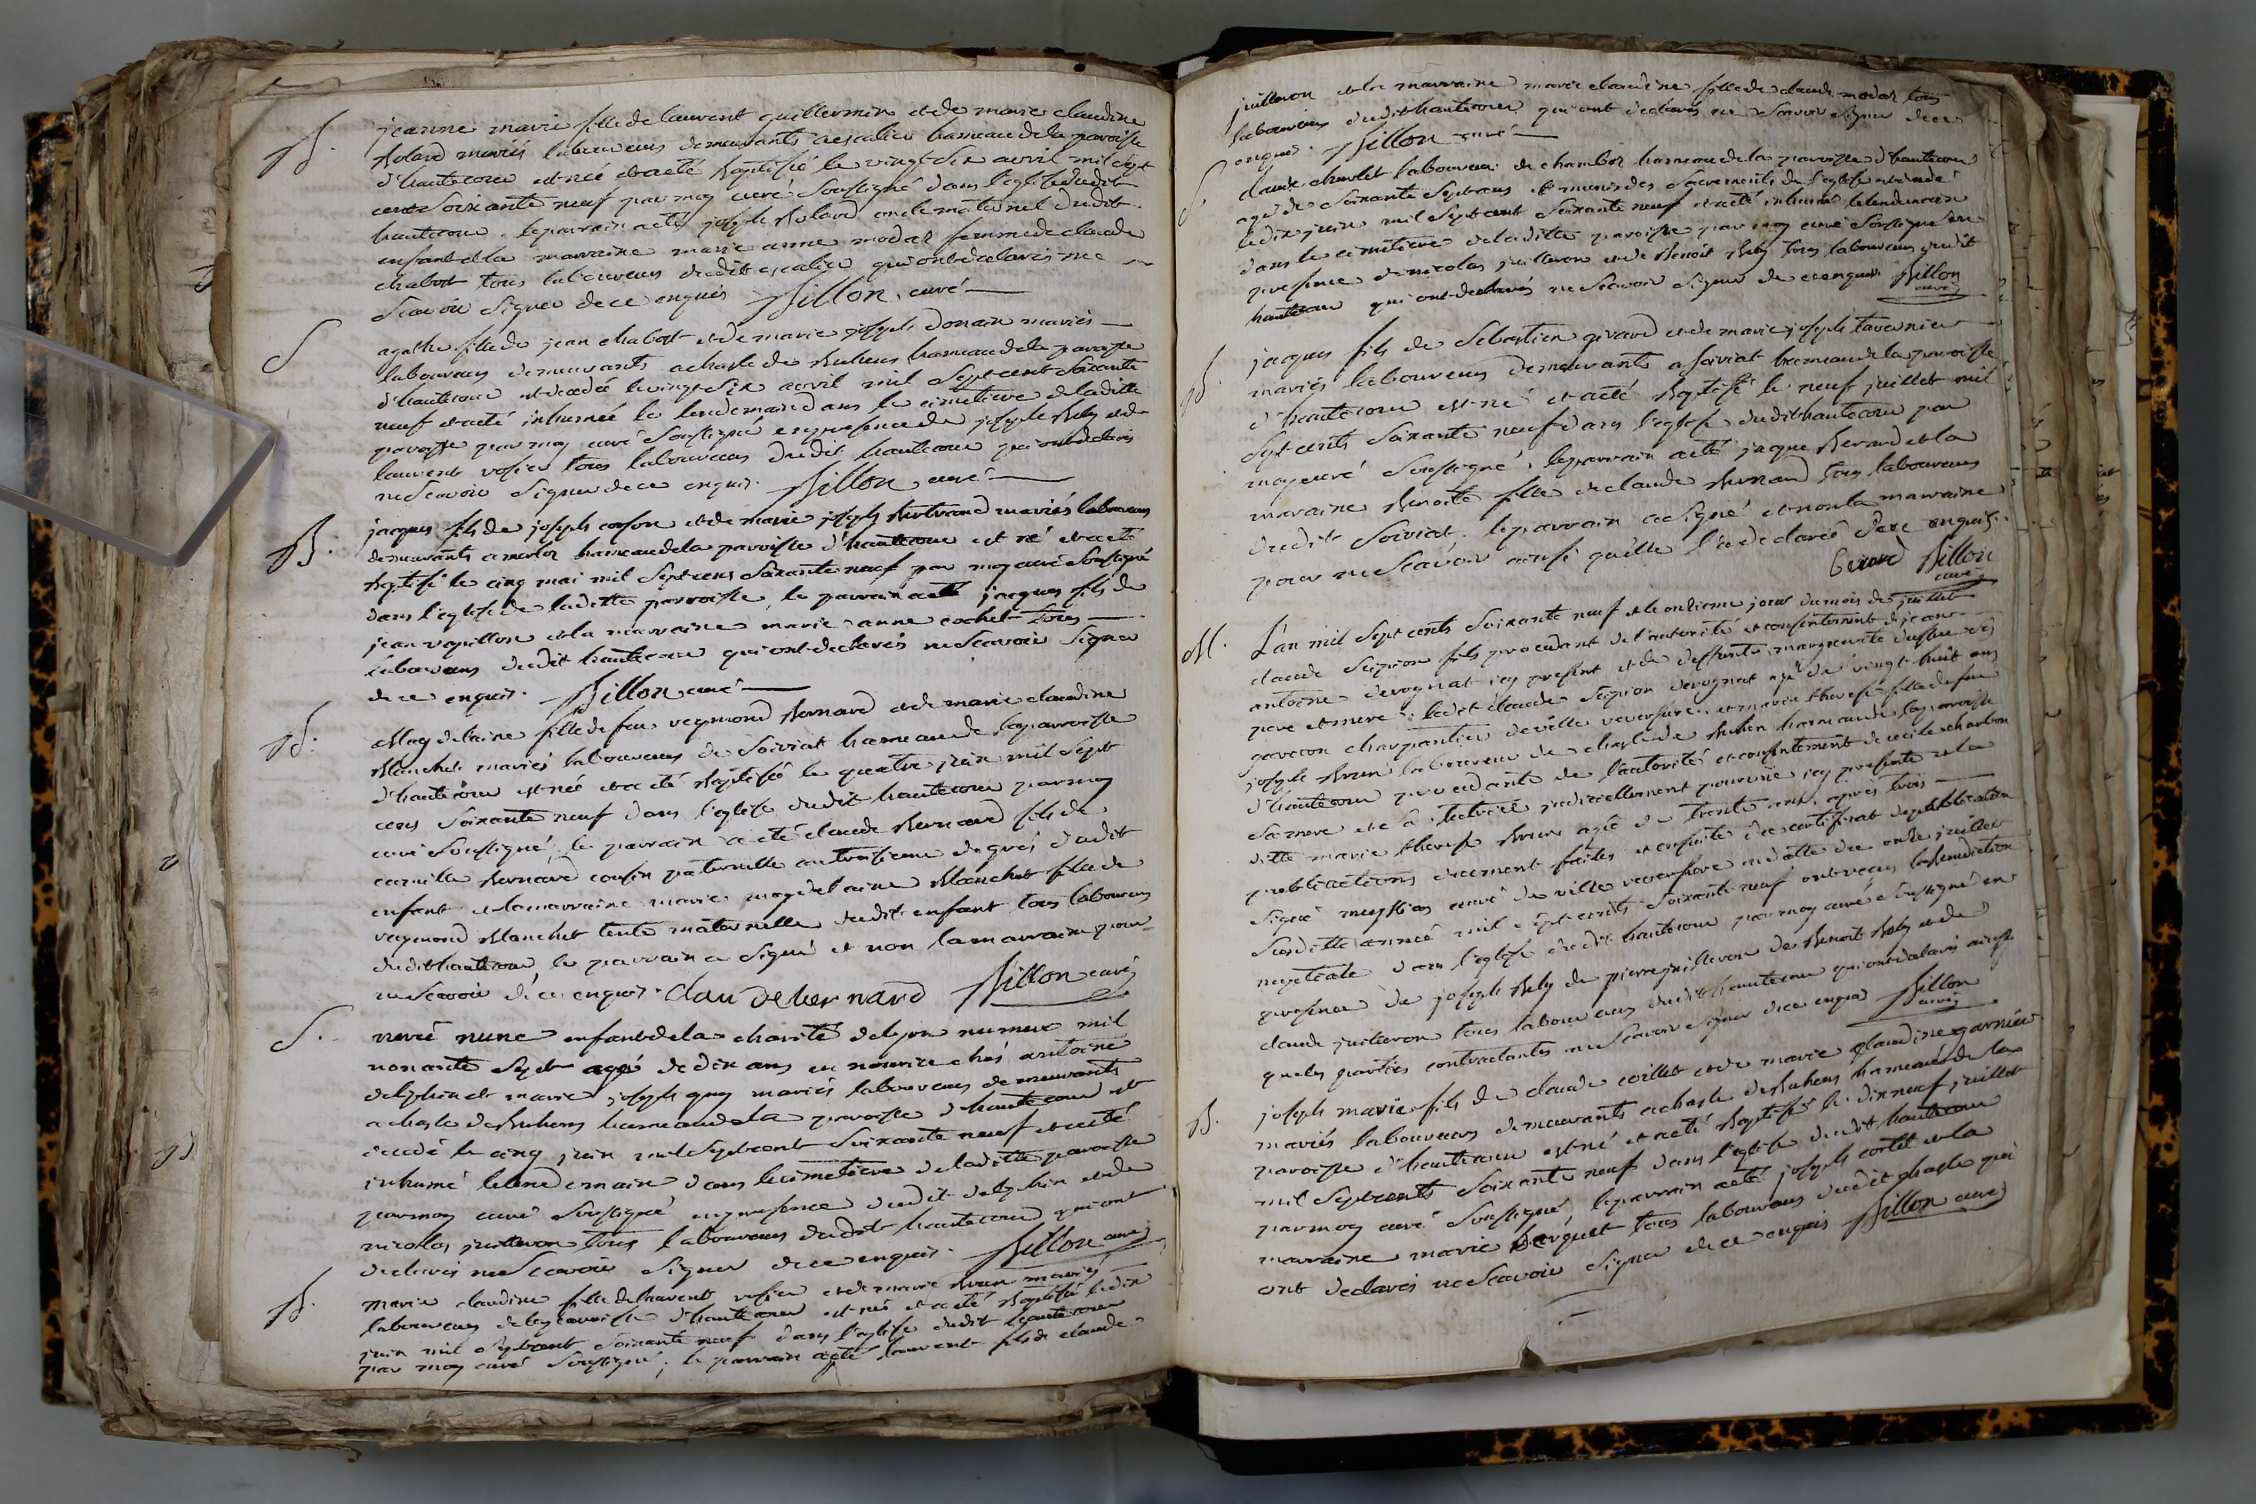 B.
jeanne marie fille de laurent guillermin et de marie claudine
Bolard mariés laboureurs demeurants a escalier hameau de la paroisse
d'hautecour est né et a eté baptisé le vingt six avril mil sept
cent soixante neuf par moy curé soussigné dans l'eglise dudit
hautecour. le parrain a eté joseph Bolard oncle maternel dudit
enfant et la marraine marie anne modas femme de claude
chabot tous laboureurs dudit escalier qui ont declarés ne
scavoir signer de ce enquis Billon, curé
S
agathe fille de jean chabot et de marie joseph donain mariés
laboureurs demeurants a chasle de Buhens hameau de la paroisse
d'hautecour est decedé le vingt six avril mil sept cent soixante
neuf et a eté inhumée le lendemain dans le cimetiere de laditte
paroisse par moy curé soussigné en presence de joseph Rely et de
laurent vosier tous laboureurs dudit hautecour qui ont declarés
ne scavoir signer de ce enquis. Billon curé
B.
jacques fils de joseph corson et de marie joseph Bertrand mariés laboureurs
demeurants a merloz hameau de la paroisse d'hautecour est né et a eté
Baptisé le cinq mai mil sept cens soixante neuf par moy curé soussigné
dans l'eglise de laditte parroisse, le parrain a eté jacques fils de
jean vapillon et la marraine marie anne cochet tous
laboureurs dudit hautecour qui ont declarés ne scavoir signer
de ce enquis. Billon curé
B.
Magdelaine fille de feu reymond Bernard et de marie claudine
Blanchet mariés laboureurs de Soiriat hameau de la parroisse
d'hautecour est né et a eté Baptisé le quatre juin mil sept
cens soixante neuf dans l'eglise dudit hautecour par moy
curé soussigné, le parrain a eté claude Bernard fils de
camille Bernard cousin paternelle au troisieme degrés dudit
enfant et la marraine marie magdelaine Blanchet fille de
reymond Blanchet tente maternelle dudit enfant tous laboureurs
dudit hautecour, le parrain a signé et non la marraine pour
ne scavoir de ce enquis. Claude bernard Billon curé
S.
nerié nune enfant de la charité de lyon numero mil
nonante sept agé de dix ans en nourrice chés antoine
delphin et marie joseph guy mariés laboureurs demeurants
a chasle de Buhens hameau de la paroisse d'hautecour est
decedé le cinq juin mil sept cent soixante neuf et a eté
inhumé le lendemain dans le cimetiere de laditte paroisse
par moy curé soussigné en presence dudit delphin et de
nicolas juilleron tous laboureurs dudit hautecour qui ont
declarés ne scavoir signer de ce enquis. Billon curé
B.
marie claudine fille de laurent vosier et de marie Brun mariés
laboureurs de la parroisse d'hautecour est né et a eté Baptisé le dix
juin mil sept cent soixante neuf dans l'eglise dudit hautecour
par moy curé soussigné, le parrain a eté laurent fils de claude
juilleron et la marraine marie claudine fille de claude modas tous
laboureurs dudit hautecour qui ont declarés ne scavoir signer de ce
enquis. Billon curé
S
claude chanlet laboureur de chambos hameau de la paroisse d'hautecour
agé de soixante sept ans et muni des sacrements de l'eglise est decedé
le dix juin mil sept cent soixante neuf et a eté inhumé le lendemain
dans le cimetiere de laditte paroisse par moy curé soussigné en
presence de nicolas juilleron et de Benoit Rely tous laboureurs dudit
hautecour qui ont declarés ne scavoir signer de ce enquis Billon
curé
B.
jacques fils de sebastien girard et de marie joseph tavernier
mariés laboureurs demeurants a soiriat hameau de la paroisse
d'hautecour est né et a eté Baptisé le neuf juillet mil
sept cents soixante neuf dans l'eglise dudit hautecour par
moy curé soussigné, le parrain a eté jacque Berard et la
maraine Benoite fille de claude Bernard tous laboureurs
dudit soiriat. le parrain a signé et non la marraine
pour ne scavoir ainsi qu'elle l'a declaré de ce enquis.
Berard Billon
curé
M.
L'an mil sept cents soixante neuf et le onzieme jour du mois de juillet
claude scipion fils procedant de l'autorité et consentement de jean
antoine derognat icy present et de deffunte marguerite dufour ses
pere et mere; ledit claude scipion derognat agé de vingt huit ans
garcon charpantier de ville reversure, et marie therese fille de feu
joseph Brun laboureur de chasle de Buhen hameau de la paroisse
d'hautecour procedante de l'autorité et consentement de cecile charbon
sa mere et sa tutrice judiciellement pourvue icy presente et la
ditte marie therese Brun agée de trente ans, apres trois
publications duement faites et ensuite du certificat de publication
signé curé de ville reversure en datte du onze juillet
susditte année mil sept cents soixante neuf ont reçus la benediction
nuptiale dans l'eglise dudit hautecour par moy curé soussigné en
presence de joseph Rely de pierre juilleron de Benoit Rely et de
claude juilleron tous laboureurs dudit hautecour qui ont declarés ainsi
que les parties contractantes ne scavoir signer de ce enquis Billon
curé
B.
joseph marie fils de claude coillet et de marie claudine garnier
mariés laboureurs demeurants a chasle de Buhens hameau de la
paroisse d'hautecour est né et a eté Baptisé le dix neuf juillet
mil sept cents soixante neuf dans l'eglise dudit hautecour
par moy curé soussigné, le parrain a eté joseph cortet et la
marraine marie Berguet tous laboureurs dudit chasle qui
ont declarés ne scavoir signer de ce enquis Billon curé